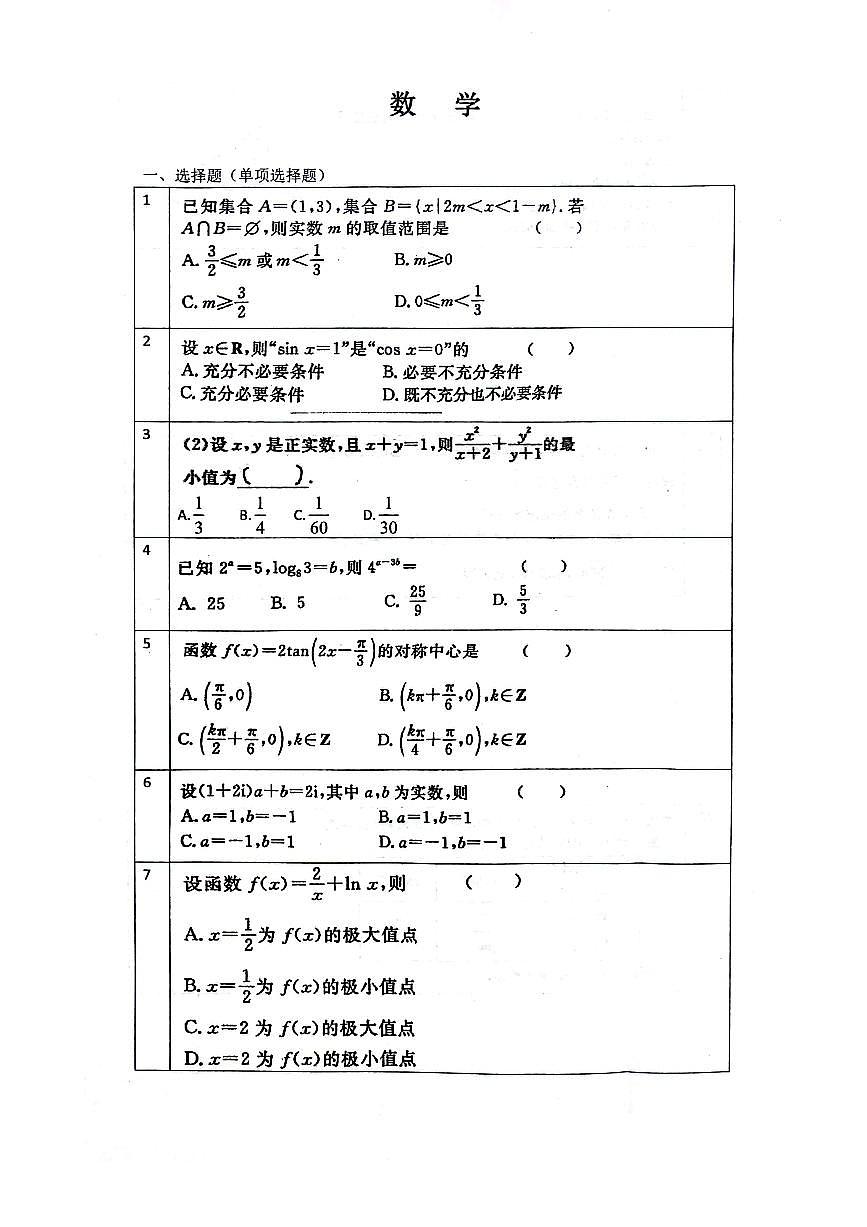 数 学
一、选择题（单项选择题）
1
已知集合 A=(1,3),集合 B={x|2m<x<1-m}.若
A∩B=∅,则实数 m 的取值范围是 ( )
A. 3/2≤m 或 m<1/3 B. m≥0
C. m≥3/2 D. 0≤m<1/3
2
设 x∈R,则“sin x=1”是“cos x=0”的 ( )
A. 充分不必要条件 B. 必要不充分条件
C. 充分必要条件 D. 既不充分也不必要条件
3
(2)设 x,y 是正实数,且 x+y=1,则 x²/(x+2)+y²/(y+1)的最
小值为( ).
A. 1/3 B. 1/4 C. 1/60 D. 1/30
4
已知 2ᵃ=5,log₈3=b,则 4ᵃ⁻³ᵇ= ( )
A. 25 B. 5 C. 25/9 D. 5/3
5
函数 f(x)=2tan(2x-π/3)的对称中心是 ( )
A. (π/6,0) B. (kπ+π/6,0),k∈Z
C. (kπ/2+π/6,0),k∈Z D. (kπ/4+π/6,0),k∈Z
6
设(1+2i)a+b=2i,其中 a,b 为实数,则 ( )
A. a=1,b=-1 B. a=1,b=1
C. a=-1,b=1 D. a=-1,b=-1
7
设函数 f(x)=2/x+ln x,则 ( )
A. x=1/2为 f(x)的极大值点
B. x=1/2为 f(x)的极小值点
C. x=2 为 f(x)的极大值点
D. x=2 为 f(x)的极小值点